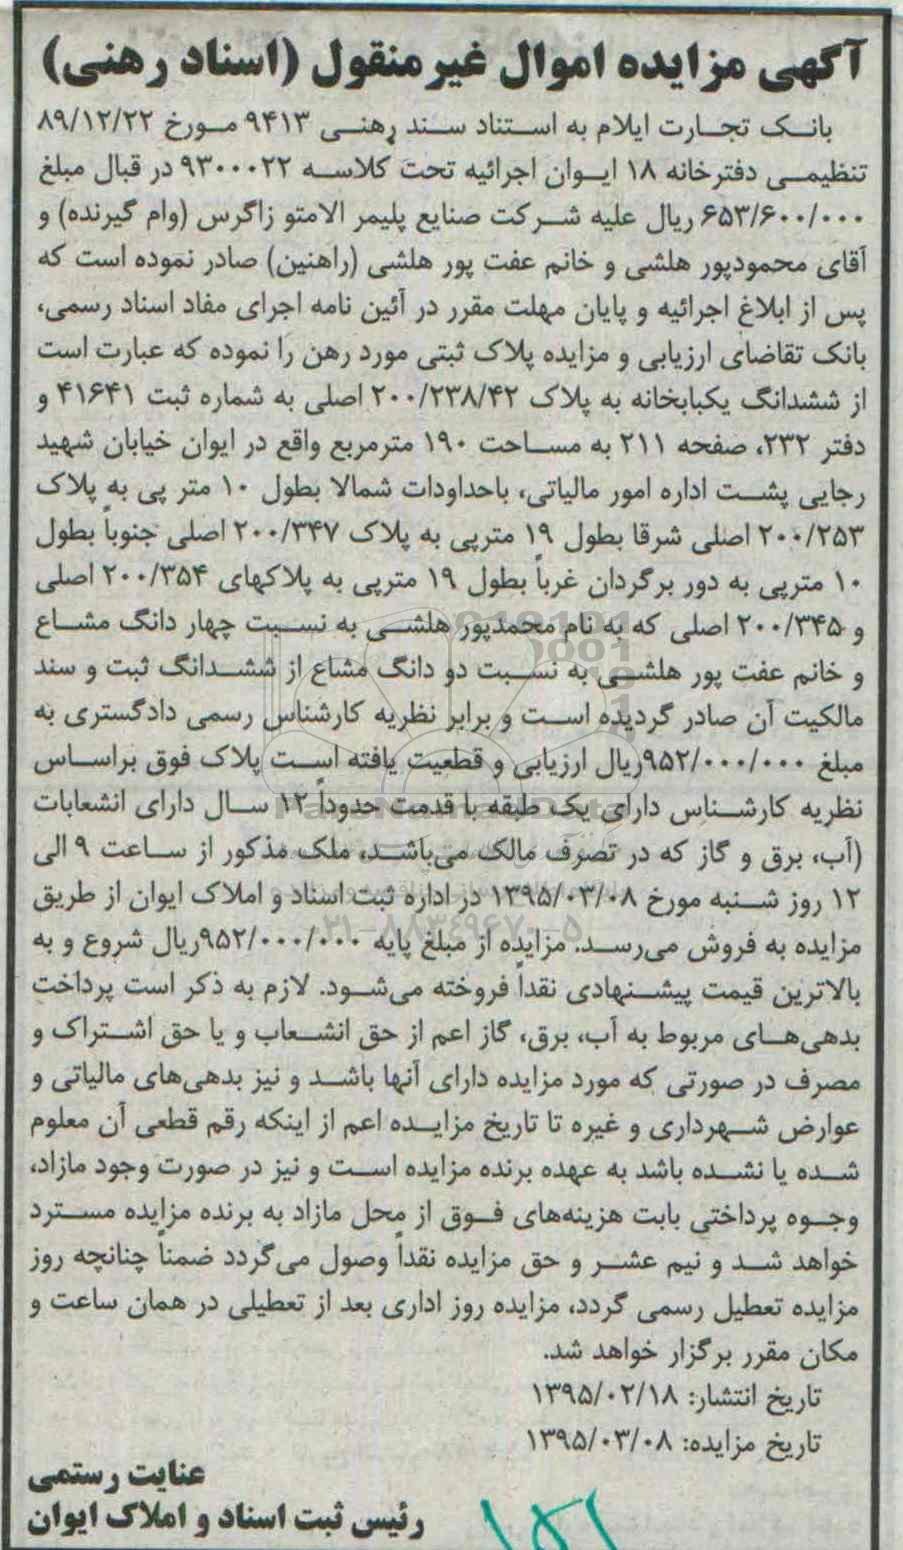 آگهی مزایده اموال غیرمنقول (اسناد رهنی)
بانک تجارت ایلام به استناد سند رهنی ۹۴۱۳ مورخ ۸۹/۱۲/۲۲
تنظیمی دفترخانه ۱۸ ایوان اجرائیه تحت کلاسه ۹۳۰۰۰۲۲ در قبال مبلغ
۶۵۳/۶۰۰/۰۰۰ ریال علیه شرکت صنایع پلیمر الامتو زاگرس (وام گیرنده) و
آقای محمودپور هلشی و خانم عفت پور هلشی (راهنین) صادر نموده است که
پس از ابلاغ اجرائیه و پایان مهلت مقرر در آئین نامه اجرای مفاد اسناد رسمی،
بانک تقاضای ارزیابی و مزایده پلاک ثبتی مورد رهن را نموده که عبارت است
از ششدانگ یکبابخانه به پلاک ۲۰۰/۲۳۸/۴۲ اصلی به شماره ثبت ۴۱۶۴۱ و
دفتر ۲۳۲، صفحه ۲۱۱ به مساحت ۱۹۰ مترمربع واقع در ایوان خیابان شهید
رجایی پشت اداره امور مالیاتی، باحداودات شمالا بطول ۱۰ متر پی به پلاک
۲۰۰/۲۵۳ اصلی شرقا بطول ۱۹ مترپی به پلاک ۲۰۰/۳۴۷ اصلی جنوباً بطول
۱۰ مترپی به دور برگردان غرباً بطول ۱۹ مترپی به پلاکهای ۲۰۰/۳۵۴ اصلی
و ۲۰۰/۳۴۵ اصلی که به نام محمدپور هلشی به نسبت چهار دانگ مشاع
و خانم عفت پور هلشی به نسبت دو دانگ مشاع از ششدانگ ثبت و سند
مالکیت آن صادر گردیده است و برابر نظریه کارشناس رسمی دادگستری به
مبلغ ۹۵۲/۰۰۰/۰۰۰ریال ارزیابی و قطعیت یافته است پلاک فوق براساس
نظریه کارشناس دارای یک طبقه با قدمت حدوداً ۱۲ سال دارای انشعابات
(آب، برق و گاز که در تصرف مالک می‌باشد، ملک مذکور از ساعت ۹ الی
۱۲ روز شنبه مورخ ۱۳۹۵/۰۳/۰۸ در اداره ثبت اسناد و املاک ایوان از طریق
مزایده به فروش می‌رسد. مزایده از مبلغ پایه ۹۵۲/۰۰۰/۰۰۰ریال شروع و به
بالاترین قیمت پیشنهادی نقداً فروخته می‌شود. لازم به ذکر است پرداخت
بدهی‌های مربوط به آب، برق، گاز اعم از حق انشعاب و یا حق اشتراک و
مصرف در صورتی که مورد مزایده دارای آنها باشد و نیز بدهی‌های مالیاتی و
عوارض شهرداری و غیره تا تاریخ مزایده اعم از اینکه رقم قطعی آن معلوم
شده یا نشده باشد به عهده برنده مزایده است و نیز در صورت وجود مازاد،
وجوه پرداختی بابت هزینه‌های فوق از محل مازاد به برنده مزایده مسترد
خواهد شد و نیم عشر و حق مزایده نقداً وصول می‌گردد ضمناً چنانچه روز
مزایده تعطیل رسمی گردد، مزایده روز اداری بعد از تعطیلی در همان ساعت و
مکان مقرر برگزار خواهد شد.
تاریخ انتشار: ۱۳۹۵/۰۲/۱۸
تاریخ مزایده: ۱۳۹۵/۰۳/۰۸
عنایت رستمی
رئیس ثبت اسناد و املاک ایوان